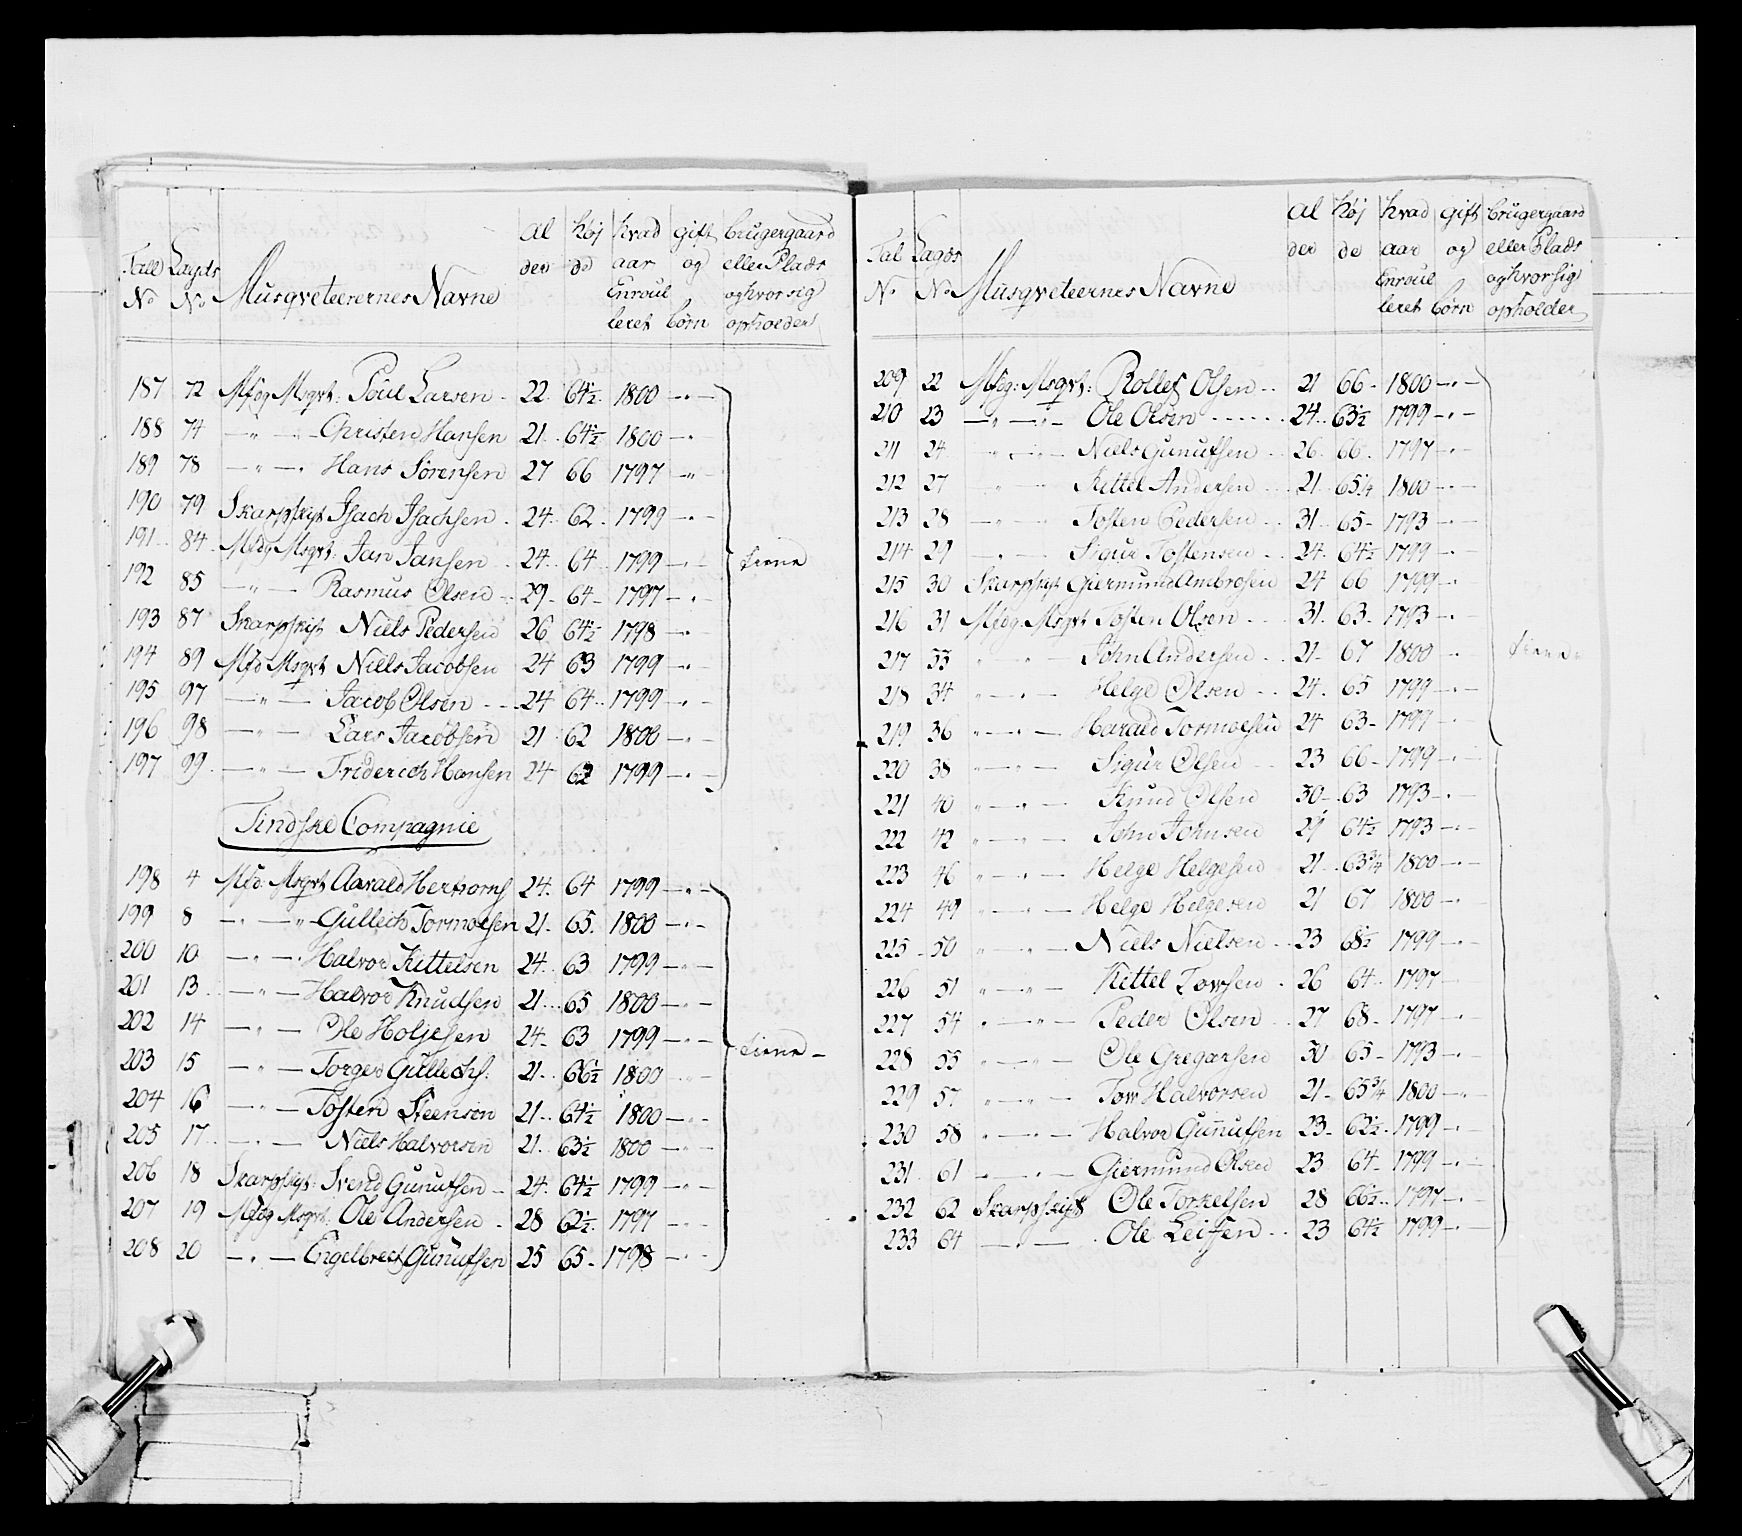 Tall Lagds Musqveteerernes Navne Al høj hvad gift brugergaard
No No der de aar og eller Plads
Enroul og hvor sig
leret børn opholder
187 72 Mfdg Msqvt: Poul Larsen - 22 64½ 1800 - " -
188 74 - " - Christen Hansen 21 64½ 1800 - " -
189 78 - " - Hans Sörensen 27 66 1797 - " -
190 79 Skarpskyt Isach Isachsen 24 62 1799 - " -
191 84 Mfdg Msqvt: Jan Jansen 24 64 1799 - " - tiene
192 85 - " - Rasmus Olsen 29 64 1797 - " -
193 87 Skarpskyt Niels Pedersen 26 64½ 1798 - " -
194 89 Mfd Msqvt Niels Jacobsen 24 63 1799 - " -
195 97 - " - Jacob Olsen 24 64 1799 - " -
196 98 - " - Lars Jacobsen 21 62 1800 - " -
197 99 - " - Friderich Hansen 24 62 1799 - " -
Tindske Compagnie
198 4 Mfd: Msqvt Aarald Herkorns 24 64 1799 - " -
199 8 - " - Gullech Tormoesen 21 65 1800 - " -
200 10 - " - Halvor Kittelsen 24 63 1799 - " -
201 13 - " - Halvor Knudsen 21 65 1800 - " -
202 14 - " - Ole Holjesen 24 63 1799 - " - tiene
203 15 - " - Torger Gullechs: 21 66½ 1800 - " -
204 16 - " - Tosten Steenson 21 64½ 1800 - " -
205 17 - " - Niels Halvorsen 21 63½ 1800 - " -
206 18 Skarpskyt: Svend Gunufsen 24 64½ 1799 - " -
207 19 Mfdg Msqvt: Ole Andersen 28 62½ 1797 - " -
208 20 - " - Engelbrect Gunufsen 25 65 1798 - " -
Tal Lagds Musqveteernes Navne Al høj hvad gift brugergaard
No No der de aar og eller Plads
Enroul og hvor sig
leret børn opholder
209 22 Mfdg: Msqvt: Rollef Olsen 21 66 1800 - " -
210 23 - " - Ole Olsen 24 63½ 1799 - " -
211 24 " - " - Niels Gunufsen 26 66 1797 - " -
212 27 - " - Kittel Andersen 21 65¼ 1800 - " -
213 28 - " - Tosten Pedersen 31 65 1793 - " -
214 29 - " - Sigur Tostensen 24 64½ 1799 - " -
215 30 Skarpskyt Giermund Ambrosen 24 66 1799 - "
216 31 Mfdg: Msqvt Tosten Olsen 31 63 1793 - "
217 33 " - " John Andersen 21 67 1800 - " tiene
218 34 " - " - Helge Olsen 24 65 1799 - " -
219 36 " - " - Harald Tormoesen 24 63 1799 - "
220 38 " - " - Sigur Olsen 23 66 1799 - " -
221 40 " - " - Knud Olsen 30 63 1793 - "
222 42 " - " - John Johnsen 29 64½ 1793 - " -
223 46 " - " - Helge Helgesen 21 63¾ 1800 - " -
224 49 " - " - Helge Helgesen 21 67 1800 - "
225 50 " - " - Niels Nielsen 23 68½ 1799 - " -
226 51 " - " - Kittel Towsen 26 64 1797 - "
227 54 " - " - Peder Olsen 27 68 1797 - "
228 55 " - " - Ole Gregarsen 30 65 1793 - " -
229 57 " - " - Tow Halvorsen 21 65¾ 1800 - " -
230 58 " - " - Halvor Gunufsen 23 62½ 1799 - " -
231 61 " - " - Giermund Olsen 23 64 1799 - " -
232 62 Skarpskyt Ole Torkelsen 28 66½ 1797 - " -
233 64 - " - Ole Leifsen 23 64½ 1799 - " -